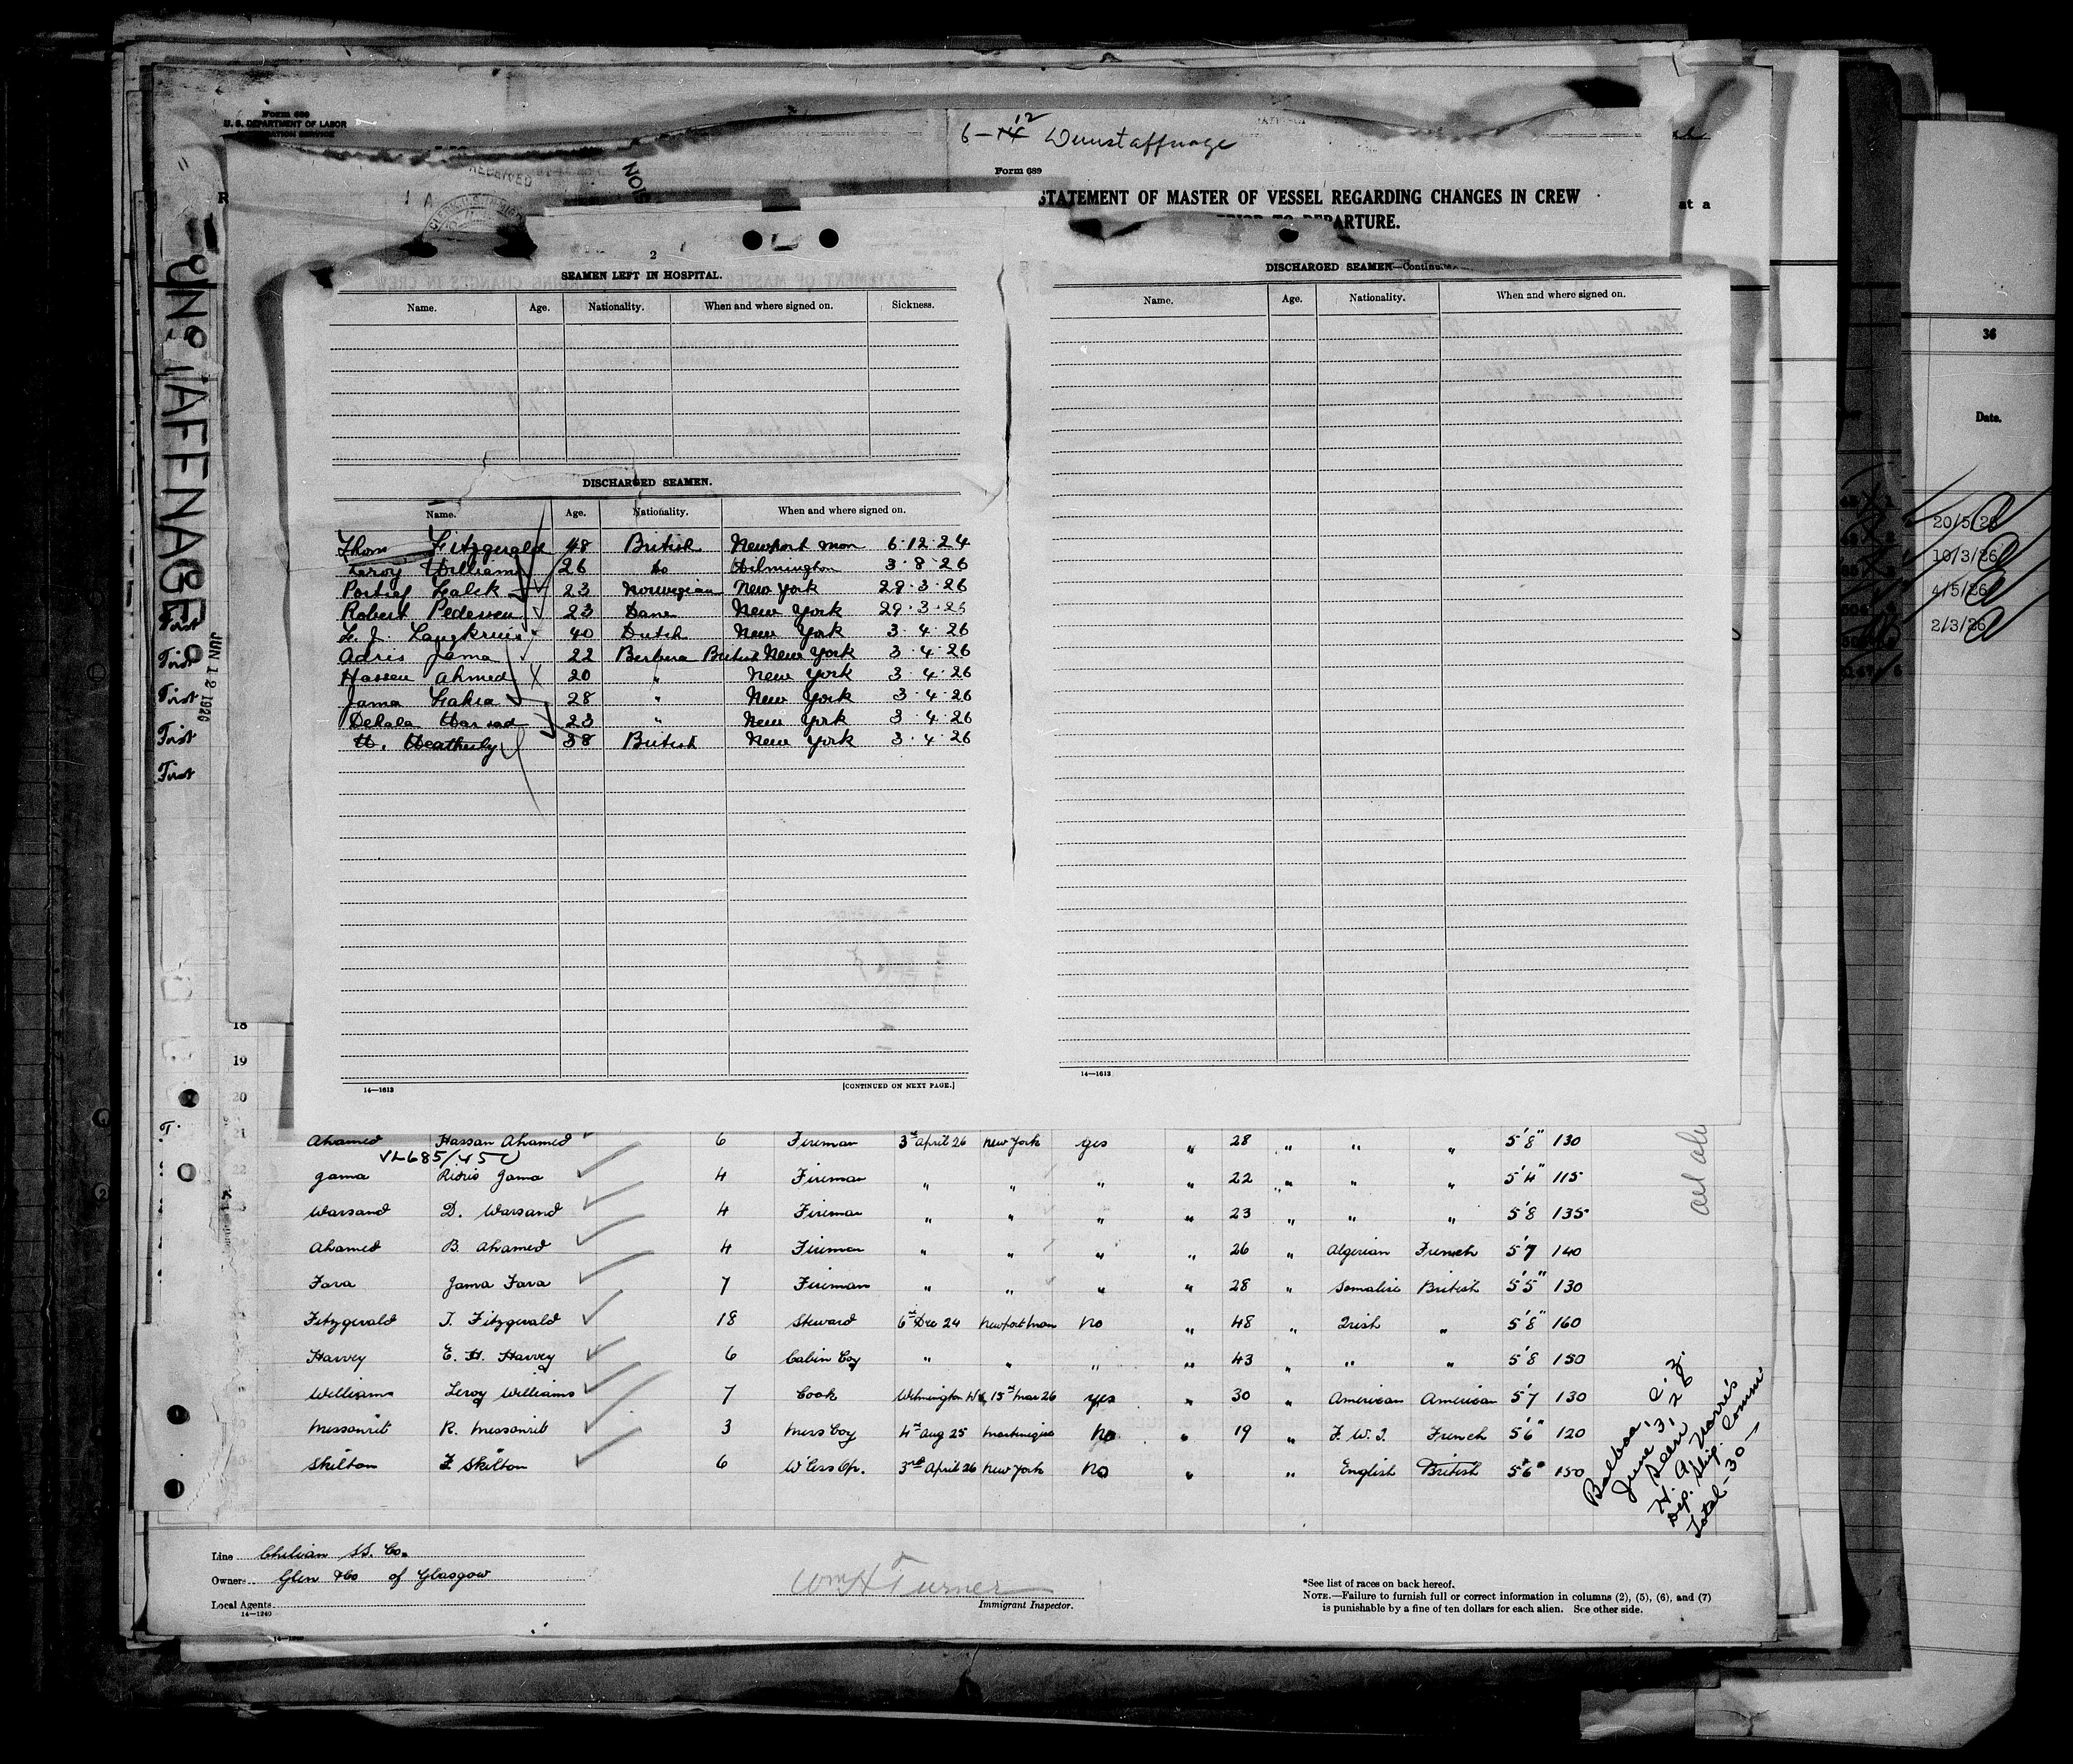 Form 689
U. S. DEPARTMENT OF LABOR
6-12 Dunstaffnage
Form 689
STATEMENT OF MASTER OF VESSEL REGARDING CHANGES IN CREW
PRIOR TO DEPARTURE.
at a
RECEIVED
2
SEAMEN LEFT IN HOSPITAL.
Name. Age. Nationality. When and where signed on. Sickness.
DISCHARGED SEAMEN.
Name. Age. Nationality. When and where signed on.
Thom Fitzgerald 48 British Newport Mon 6.12.24
Leroy Williams 26 do Wilmington 3.8.26
Falck 23 Norwegian New York 29.3.26
Robert Pedersen 23 Dane New York 29.3.26
40 Dutch New York 3.4.26
Adris Jama 22 Berbera British New York 3.4.26
Hassen Ahmed 20 " New York 3.4.26
Jama 28 " New York 3.4.26
23 " New York 3.4.26
W. Weatherly 38 British New York 3.4.26
14—1613 [CONTINUED ON NEXT PAGE.]
DISCHARGED SEAMEN—Continued
Name. Age. Nationality. When and where signed on.
14—1613
36
Date.
20/5/26
10/3/26
4/5/26
2/3/26
JUN 12 1926
First
First
First
First
First
18
19
20
21 Ahamed Hassan Ahamed 6 Fireman 3rd April 26 New York yes " 28 " " " 5'8" 130
22 Jama Jama 4 Fireman " " " " 22 " " " 5'4" 115
Warsand D. Warsand 4 Fireman " " " " 23 " " " 5'8 135
Ahamed B. Ahamed 4 Fireman " " " " 26 " Algerian French 5'7 140
Fara Jama Fara 7 Fireman " " " " 28 " Somalise British 5'5" 130
Fitzgerald T. Fitzgerald 18 Steward 6th Dec 24 Newport Mon no " 48 " Irish " 5'8" 160
Harvey E. H. Harvey 6 Cabin boy " " " " 43 " " " 5'8 150
Williams Leroy Williams 7 Cook Wilmington 15th Mar 26 yes " 30 " American American 5'7 130
Messanvit R. Messanvit 3 Mess boy 4th Aug 25 Martinique No " 19 " F. W. I. French 5'6" 120
Skilton F. Skilton 6 W'less Op. 3rd April 26 New York No " " English British 5'6" 150
Balboa, C. Z.
June 3, 26
Seen
H. A. Norris
Dep. Ship. Comm
Total - 30 -
Line Chilean SS. Co.
Owners Glen & Co of Glasgow
Local Agents
14—1240
Wm H Turner
Immigrant Inspector.
*See list of races on back hereof.
NOTE.—Failure to furnish full or correct information in columns (2), (5), (6), and (7)
is punishable by a fine of ten dollars for each alien. See other side.